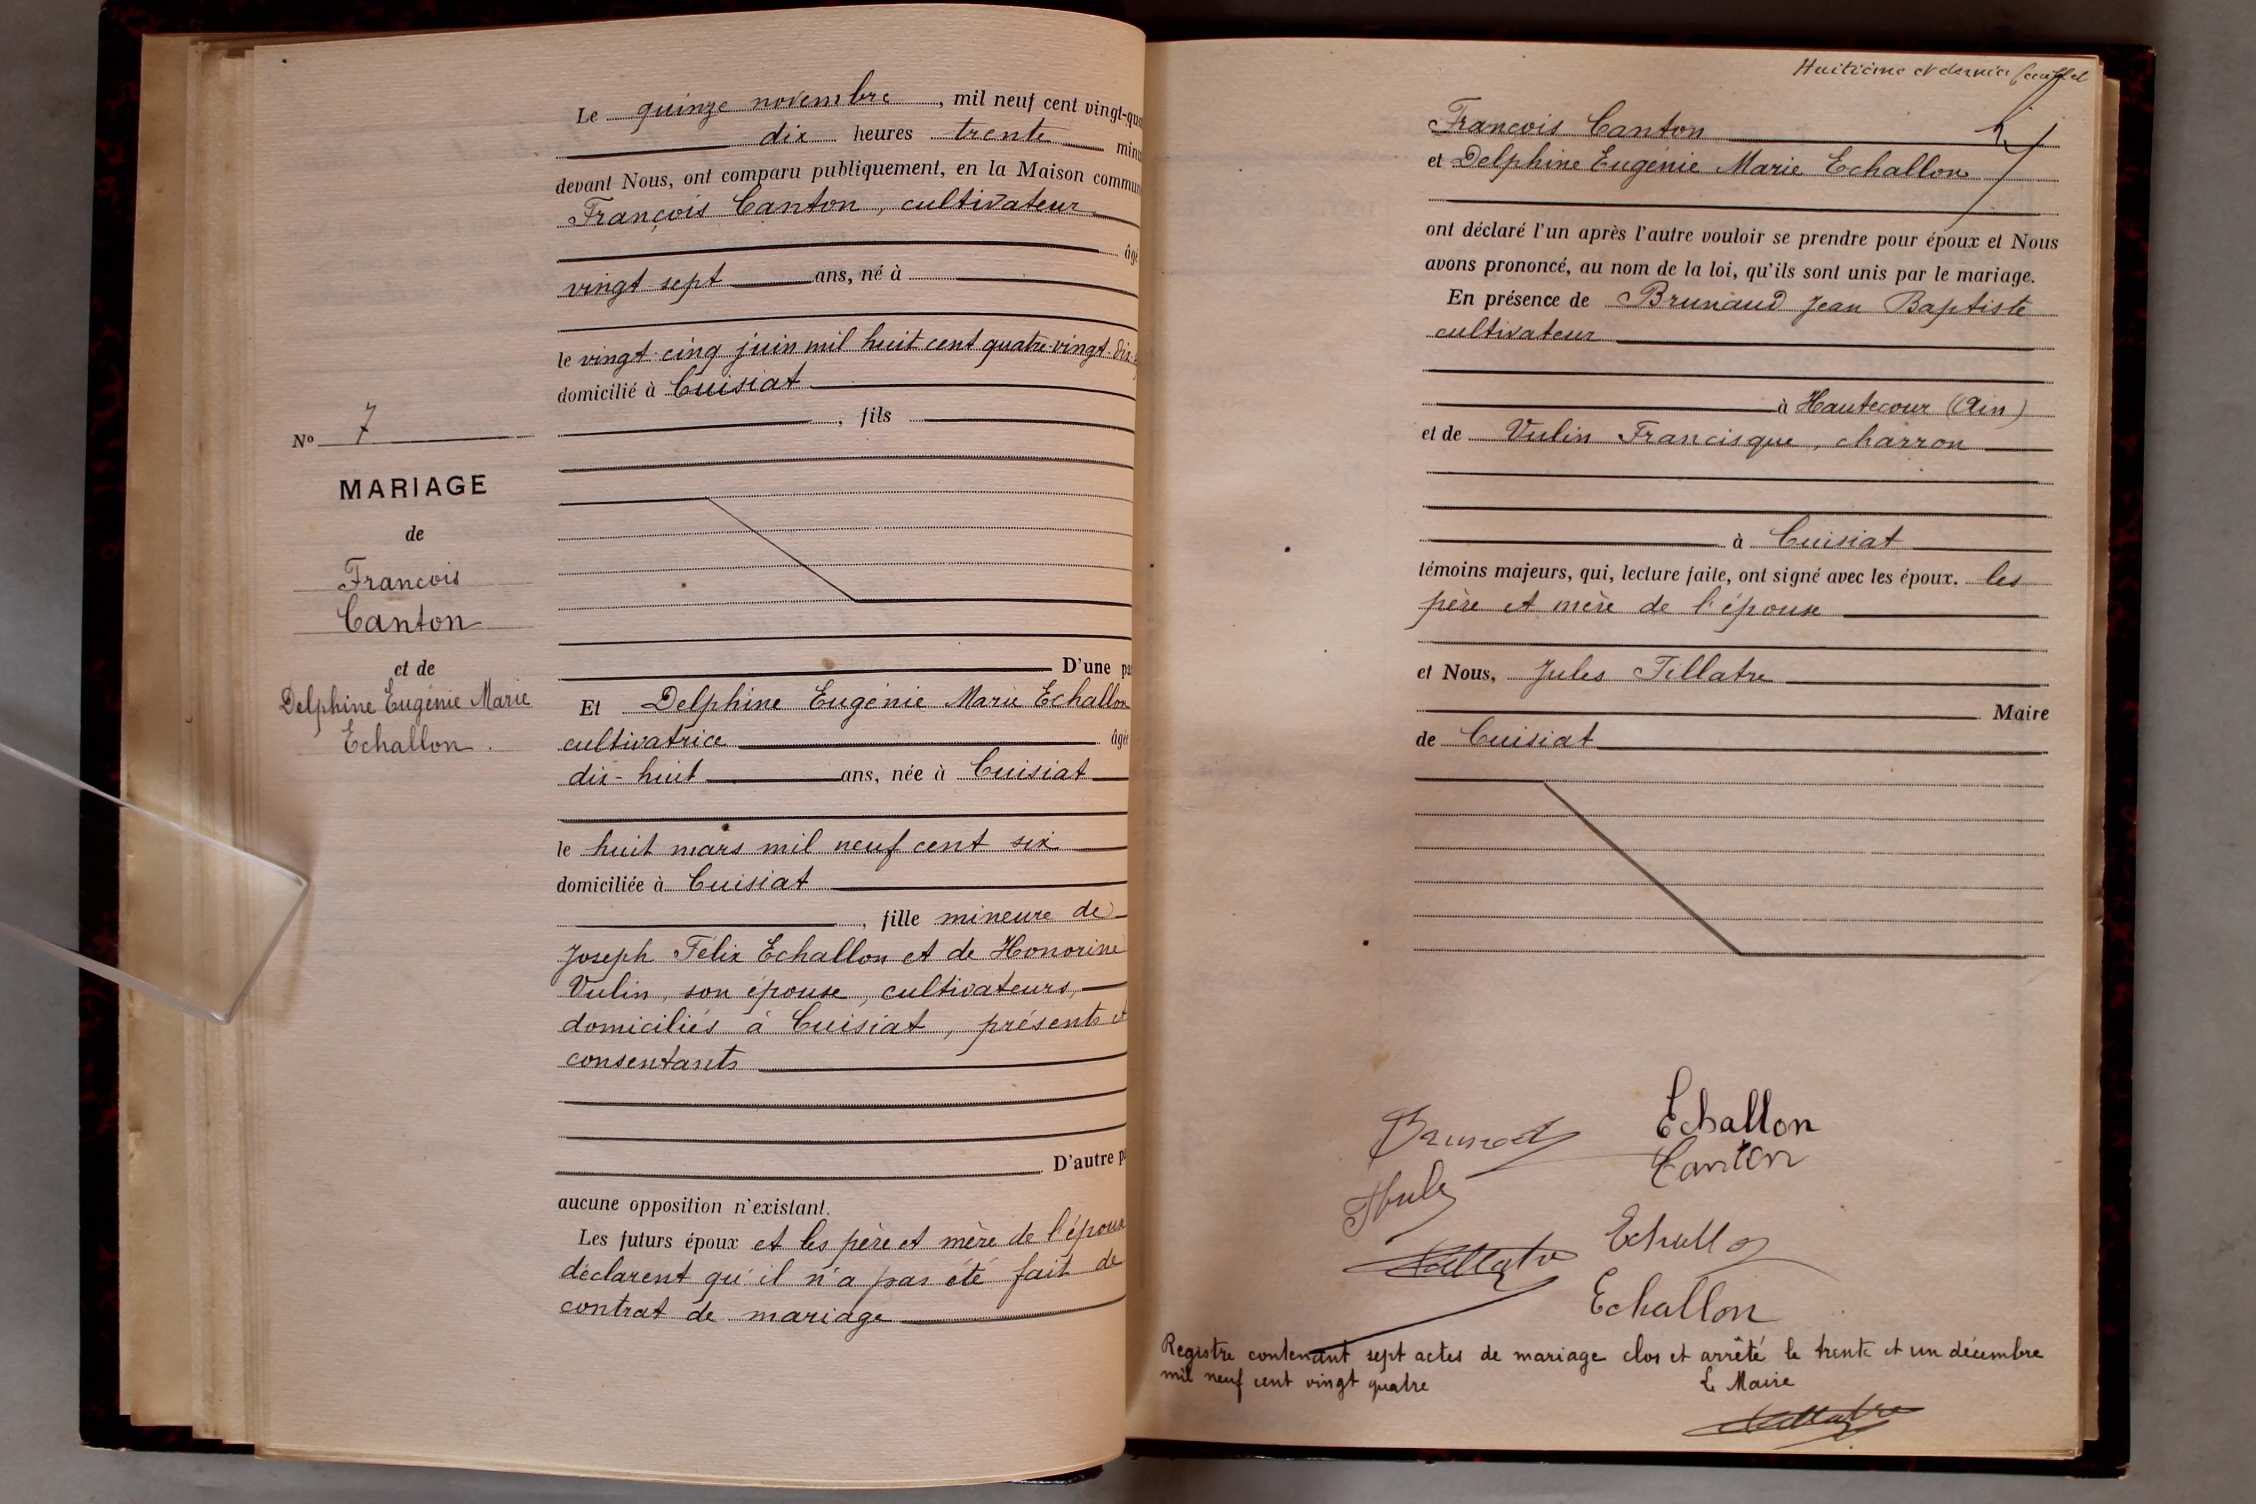 Le quinze novembre, mil neuf cent vingt-qua
dix heures trente minu
devant Nous, ont comparu publiquement, en la Maison commun
François Canton, cultivateur
âgé
vingt sept ans, né à
le vingt-cinq juin mil huit cent quatre-vingt-dix-
domicilié à Cuisiat
, fils
D'une pa
Et Delphine Eugénie Marie Echallon
cultivatrice âgé
dix-huit ans, née à Cuisiat
le huit mars mil neuf cent six
domiciliée à Cuisiat
, fille mineure de
Joseph Félix Echallon et de Honorine
Vulin, son épouse, cultivateurs,
domiciliés à Cuisiat, présents et
consentants
D'autre p
aucune opposition n'existant.
Les futurs époux et les père et mère de l'épouse
déclarent qu'il n'a pas été fait de
contrat de mariage
No 7
MARIAGE
de
François
Canton
et de
Delphine Eugénie Marie
Echallon.
Huitième et dernier feuillet
François Canton
et Delphine Eugénie Marie Echallon
ont déclaré l'un après l'autre vouloir se prendre pour époux et Nous
avons prononcé, au nom de la loi, qu'ils sont unis par le mariage.
En présence de Brunaud Jean Baptiste
cultivateur
à Hautecour (Ain)
et de Vulin Francisque, charron
à Cuisiat
témoins majeurs, qui, lecture faite, ont signé avec les époux. les
père et mère de l'épouse
et Nous, Jules Tillatre
Maire
de Cuisiat
Echallon
Canton
Echallon
Tillatre
Echallon
Registre contenant sept actes de mariage clos et arrêté le trente et un décembre
mil neuf cent vingt quatre
Le Maire
Tillatre